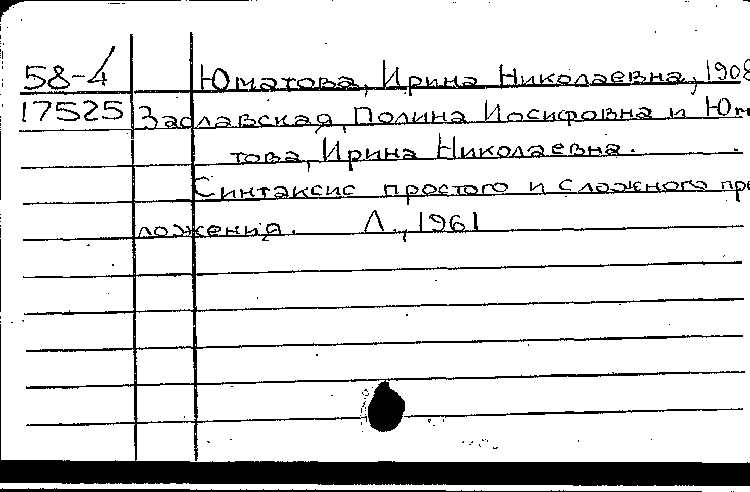 58-4 Юматова, Ирина Николаевна, 1908
17525 Заславская, Полина Иосифовна и Юма
това, Ирина Николаевна.
Синтаксис простого и сложного пре
ложения. Л., 1961